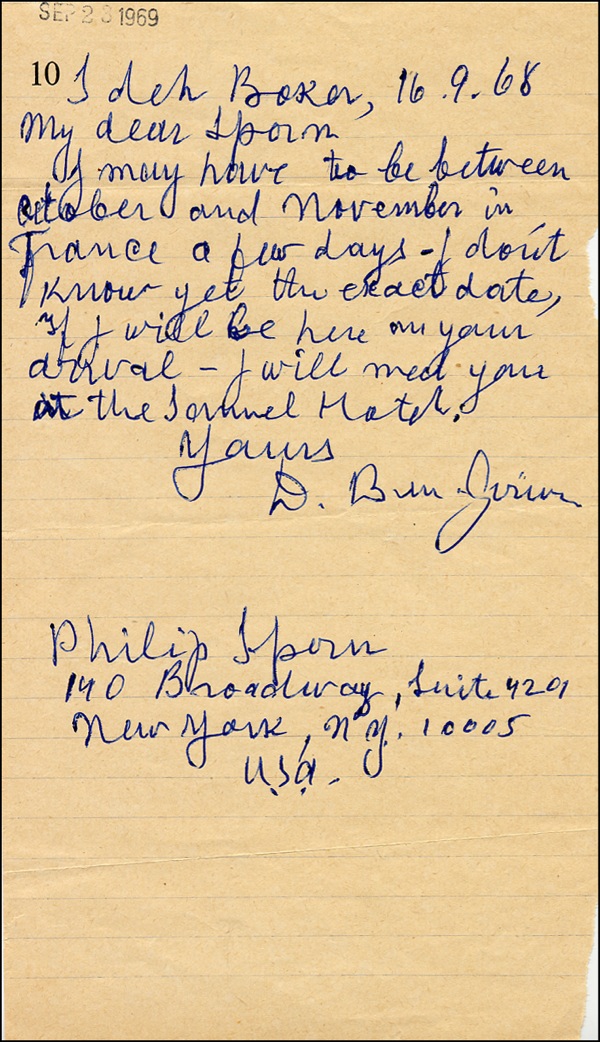 SEP 23 1969
10 Sdeh Boker, 16.9.68
My dear Sporn
I may have to be between
october and November in
France a few days - I don't
know yet the exact date,
If I will be here on your
arrival - I will meet you
at the Sonnel Hotel.
Yours
D. Ben-Gurion
Philip Sporn
140 Broadway, Suite 4201
New York, N.Y. 10005
U.S.A.